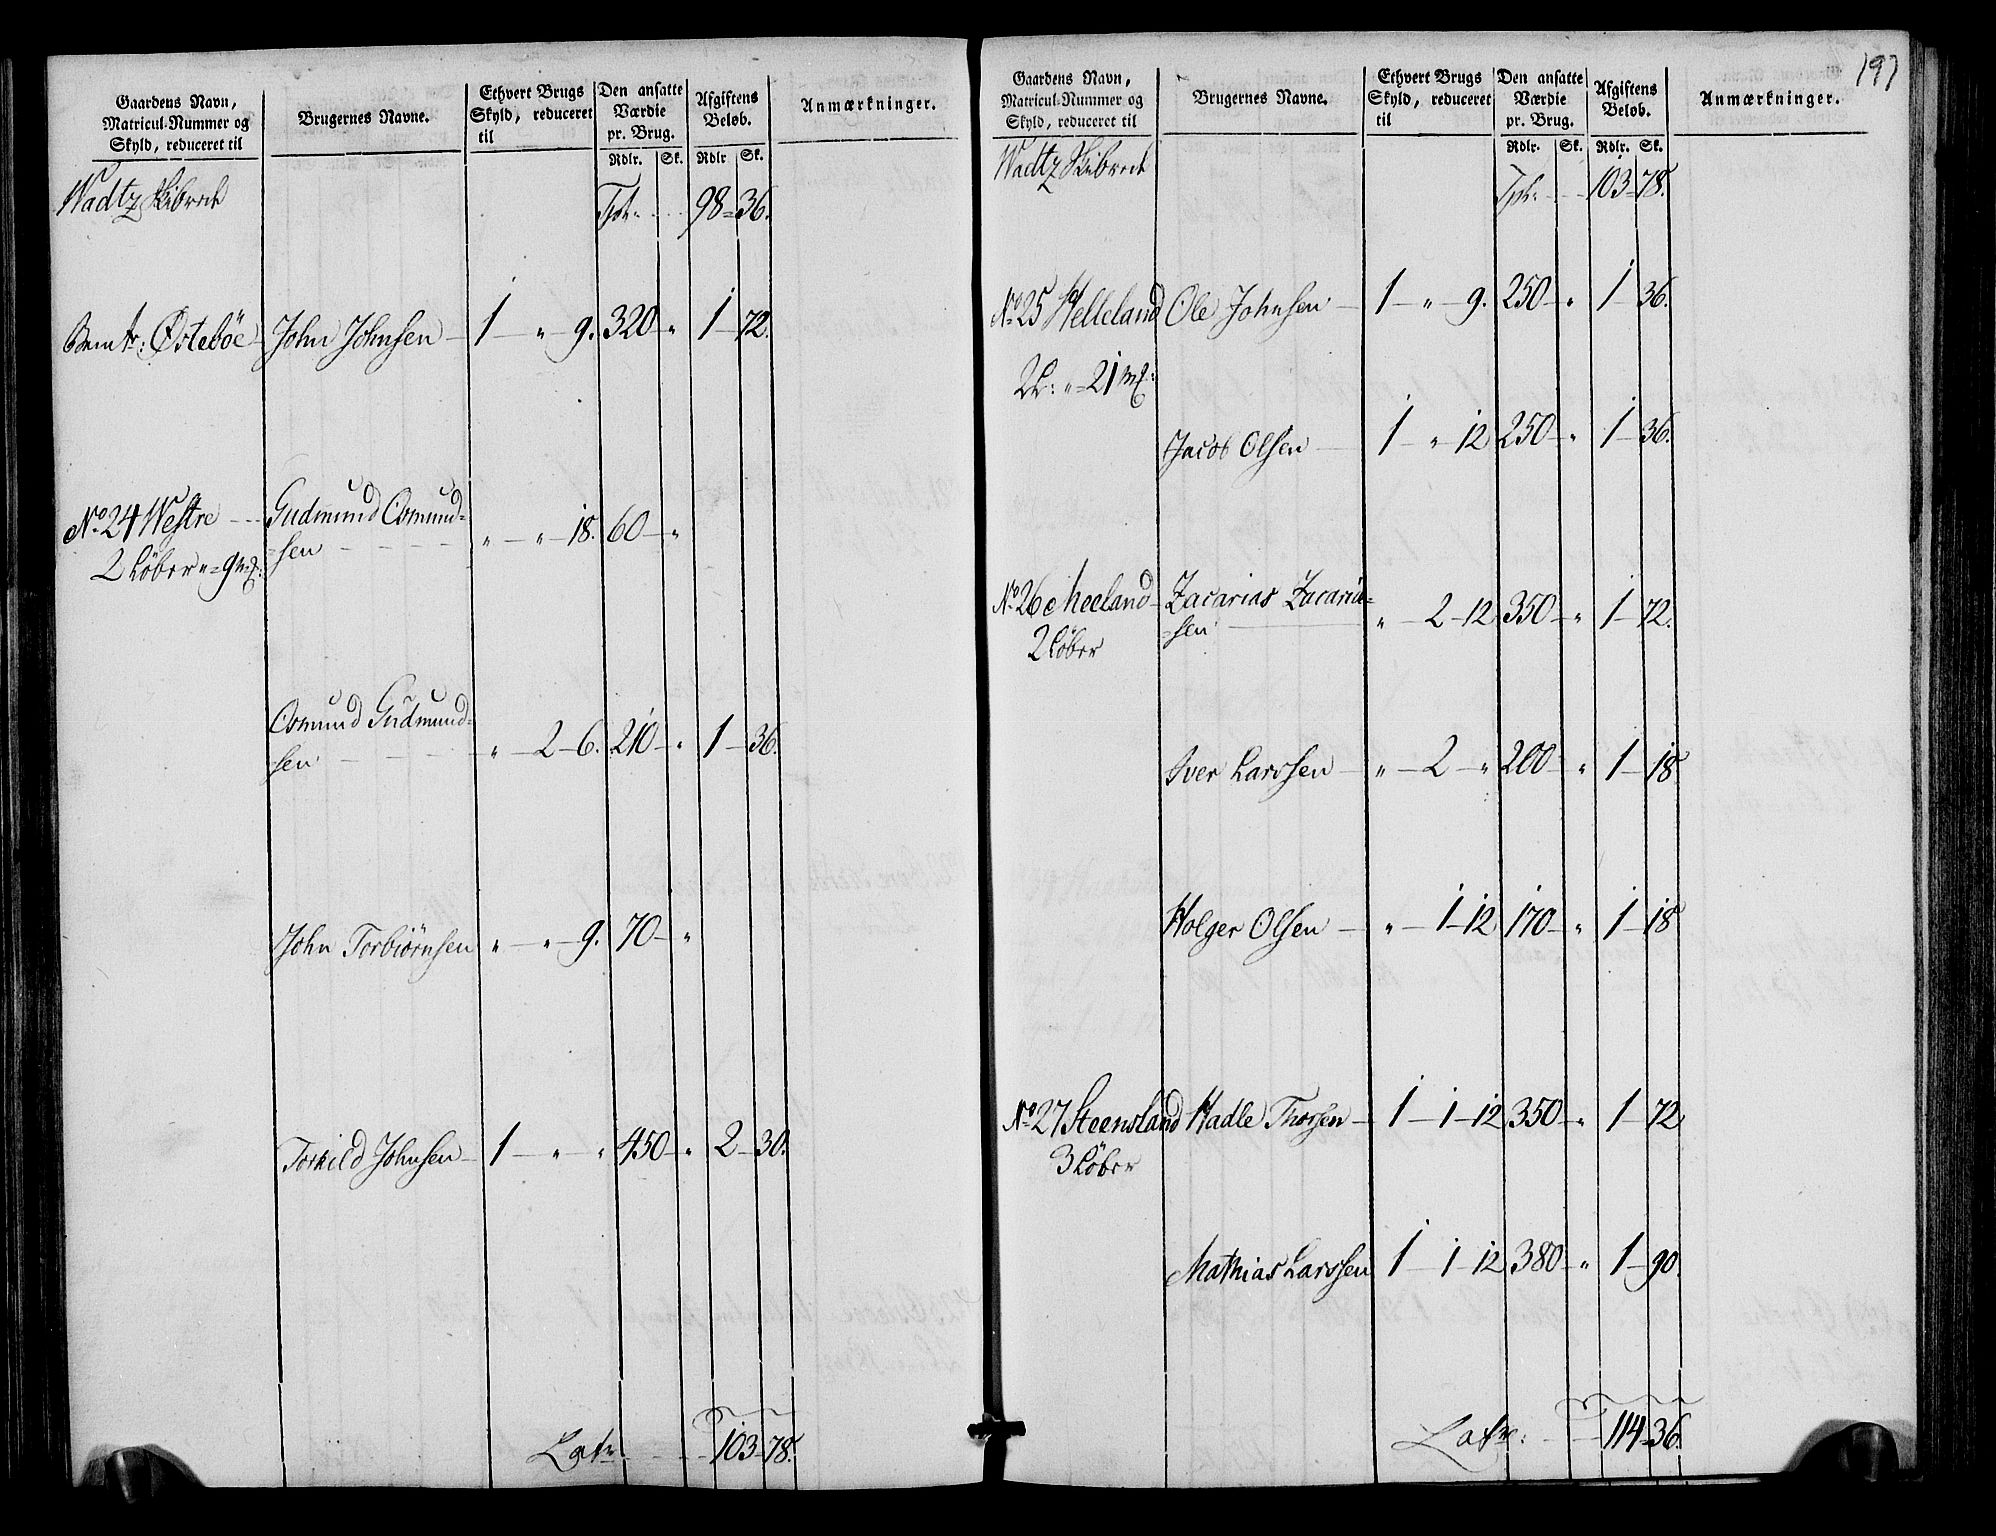 Gaardens Navn,
Matricul-Nummer og
Skyld, reduceret til
Brugernes Navne.
Ethvert Brugs
Skyld, reduceret
til
Den ansatte
Værdie
pr. Brug.
Rdlr. Sk.
Afgiftens
Beløb.
Rdlr Sk.
Anmærkninger.
Wadtz Skibrede
Tpt. 98 = 36.
Østebøe John Johnsen 1 — " 9. 320 — " 1 — 72.
No 24 Westre Gudmund Osmund=
=sen " — " — 18. 60 — "
2 Løber " = 9 mk:
Osmund Gudmund=
sen " — 2 — 6. 210 — " 1 — 36.
John Torbiørnsen " — " — 9. 70 — "
Torkild Johnsen 1 — " " 450 — " 2 — 30.
Latr. 103 — 78.
197
Gaardens Navn,
Matricul-Nummer og
Skyld, reduceret til
Brugernes Navne.
Ethvert Brugs
Skyld, reduceret
til
Den ansatte
Værdie
pr. Brug.
Rdlr. Sk.
Afgiftens
Beløb.
Rdlr. Sk.
Anmærkninger.
Wadtz Skibrede
Tpt. 103 — 78.
No 25 Helleland Ole Johnsen 1 — " — 9. 250 — " 1 — 36.
2 L: " = 21 mk:
Jacob Olsen 1 — " 12 250 — " 1 — 36.
No 26 Meeland Zacarias Zacaria=
=sen " — 2 — 12 350 — " 1 — 72.
2 Løber
Iver Larssen " — 2 — " 200 — " 1 — 18
Holger Olsen " — 1 — 12 170 — " 1 — 18
No 27 Steensland Hadle Thorsen 1 — 1 — 12 350 — " 1 — 72
3 Løber
Mathias Larssen 1 — 1 — 12 380 — " 1 — 90.
Latr: 114 = 36.